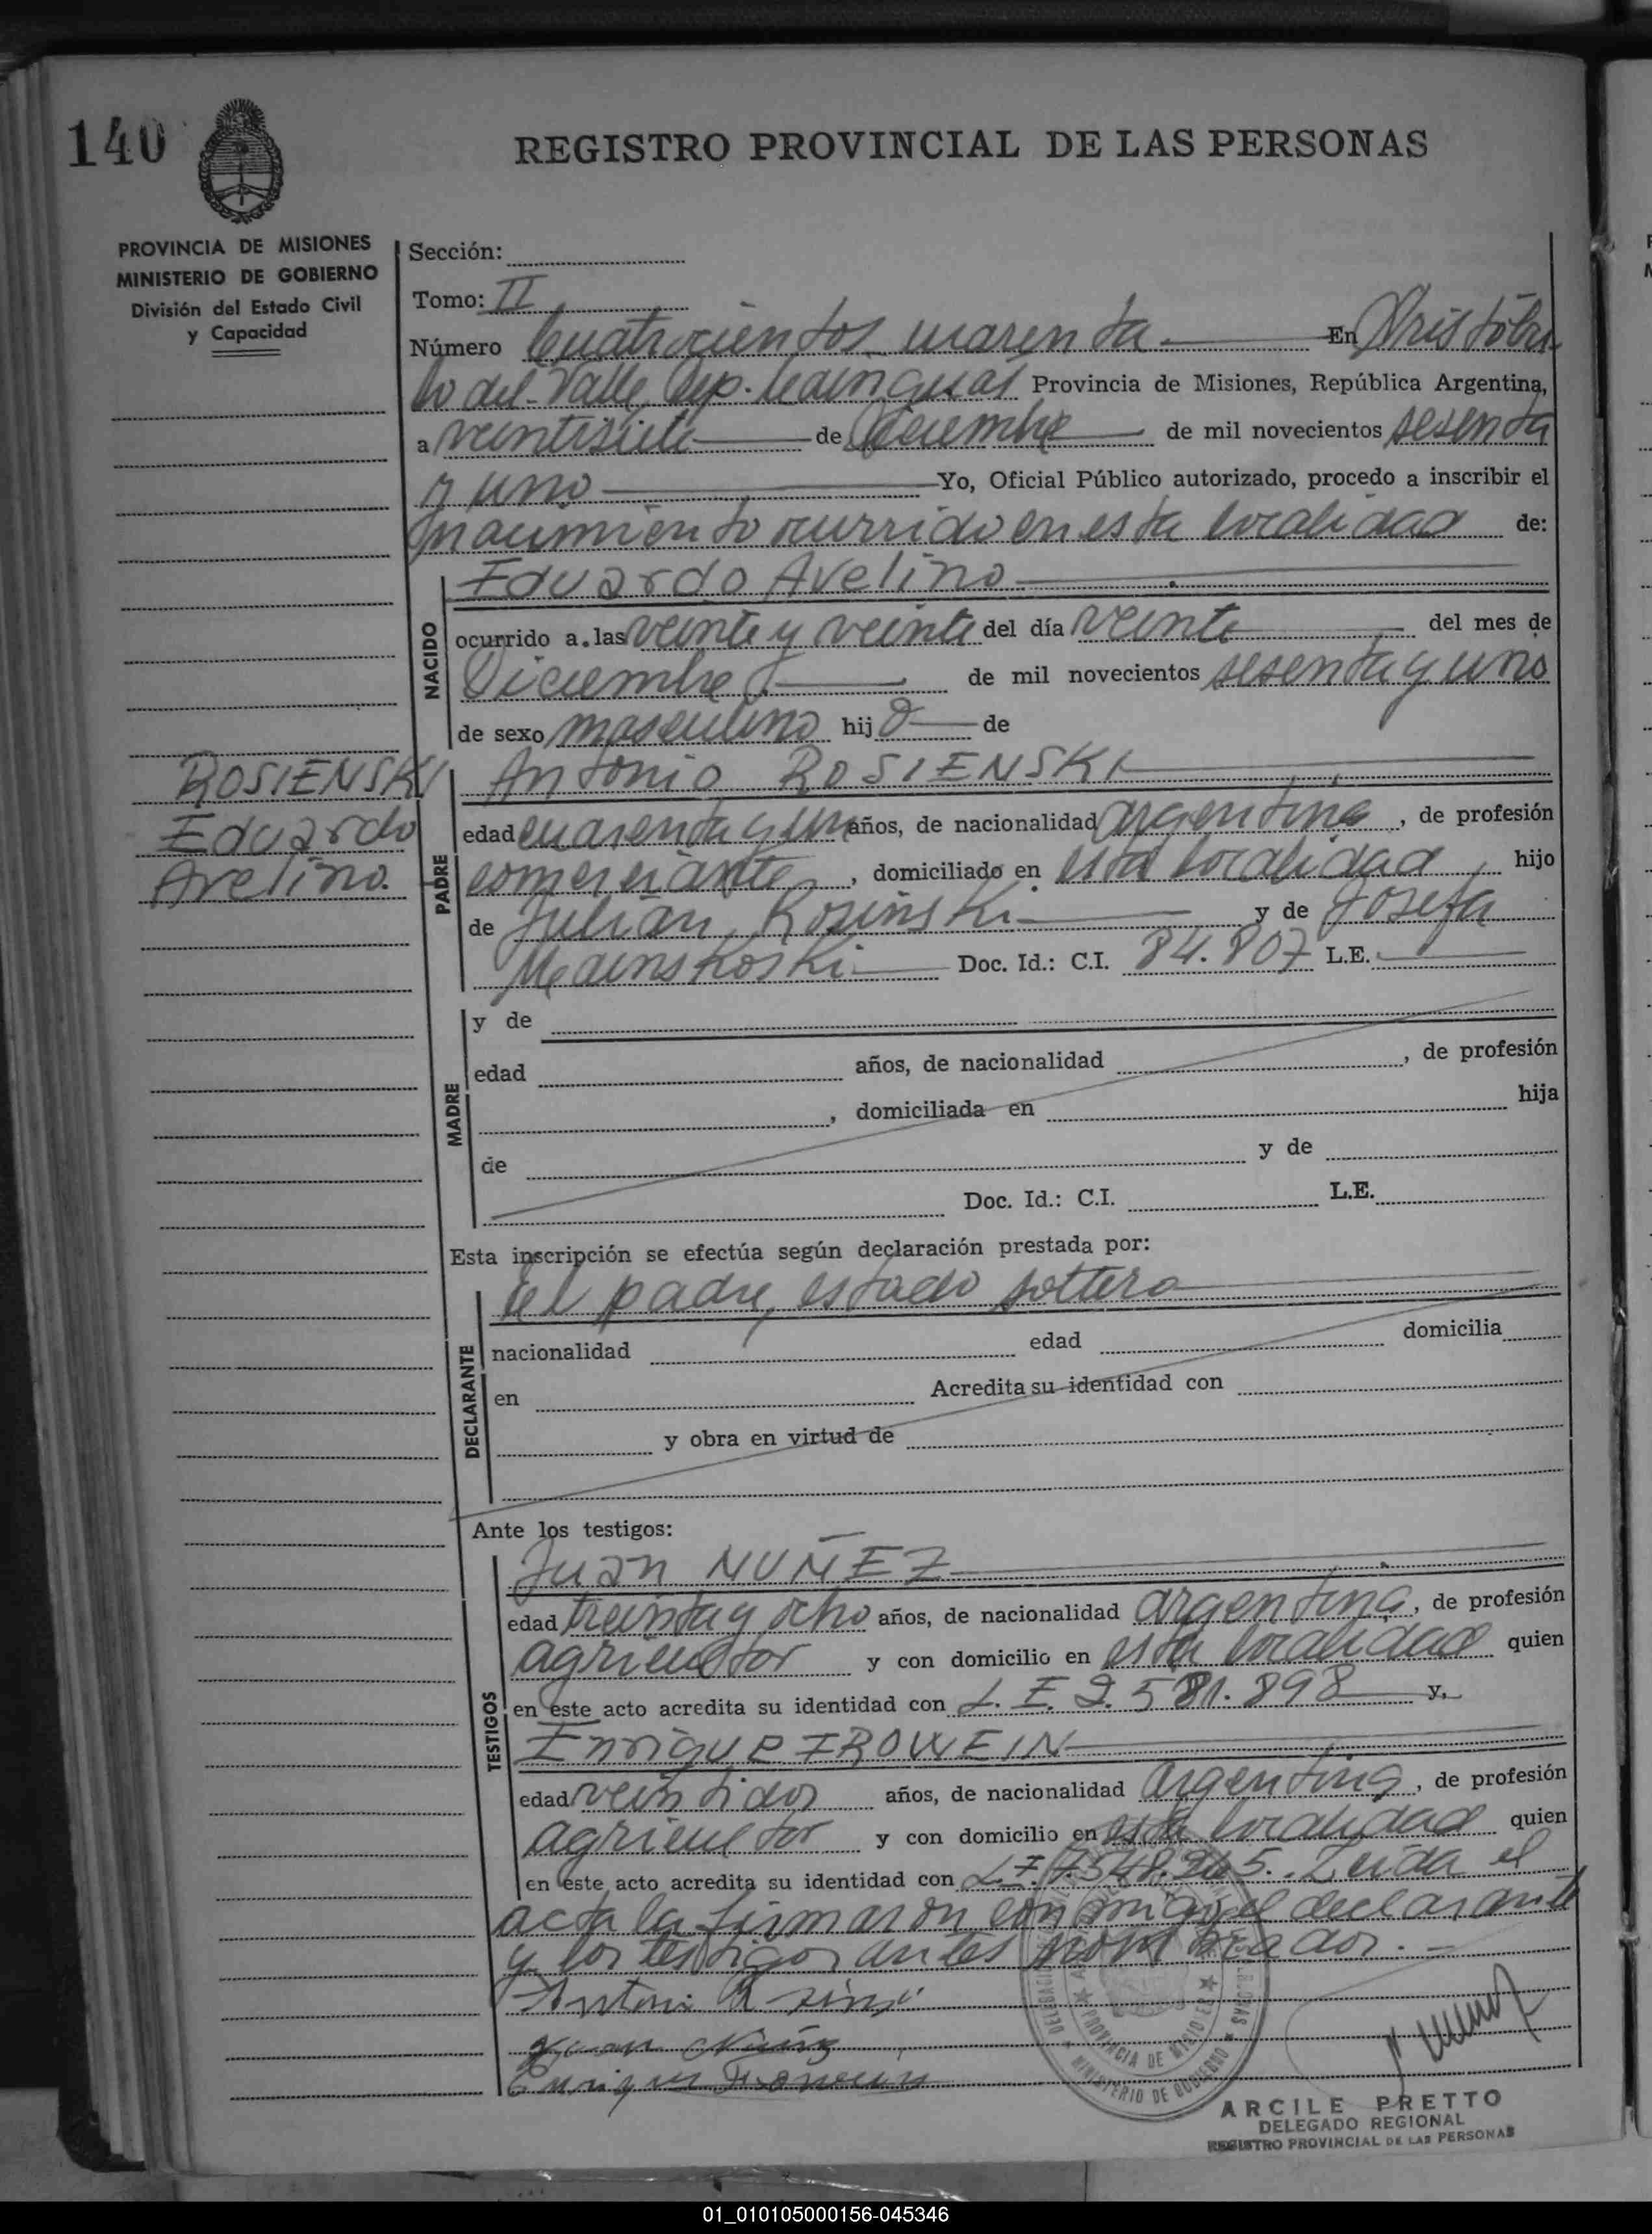 140
REGISTRO PROVINCIAL DE LAS PERSONAS
PROVINCIA DE MISIONES
MINISTERIO DE GOBIERNO
División del Estado Civil
y Capacidad
Sección:
Tomo: II
Número Cuatrocientos cuarenta En Aristóbu
lo del Valle, Dep. Cainguas Provincia de Misiones, República Argentina,
a veintisiete de Diciembre de mil novecientos sesenta
y uno Yo, Oficial Público autorizado, procedo a inscribir el
nacimiento ocurrido en esta localidad de:
NACIDO
Eduardo Avelino
ocurrido a las veinte y veinte del día veinte del mes de
Diciembre de mil novecientos sesenta y uno
de sexo masculino hijo de
ROSIENSKI
Eduardo
Avelino.
PADRE
Antonio ROSIENSKI
edad cuarenta y un años, de nacionalidad argentina, de profesión
comerciante, domiciliado en esta localidad hijo
de Julián Rosinski y de Josefa
Doc. Id.: C.I. 84.807 L.E.
MADRE
y de
edad años, de nacionalidad , de profesión
, domiciliada en hija
de y de
Doc. Id.: C.I. L.E.
Esta inscripción se efectúa según declaración prestada por:
DECLARANTE
el padre, estado soltero
nacionalidad edad domicilia
en Acredita su identidad con
y obra en virtud de
Ante los testigos:
TESTIGOS
Juan NUÑEZ
edad treinta y ocho años, de nacionalidad argentina, de profesión
agricultor y con domicilio en esta localidad quien
en este acto acredita su identidad con L.E. 2.581.898 y,
Enrique FROWEIN
edad veintidos años, de nacionalidad argentina, de profesión
agricultor y con domicilio en esta localidad quien
en este acto acredita su identidad con L.E. 7.548.945. Leida el
acta la firmaron conmigo el declarante
y los testigos antes nombrados.
Juan Nuñez
Enrique Frowein
PROVINCIA DE MISIONES
MINISTERIO DE GOBIERNO
ARCILE PRETTO
DELEGADO REGIONAL
REGISTRO PROVINCIAL DE LAS PERSONAS
01_010105000156-045346